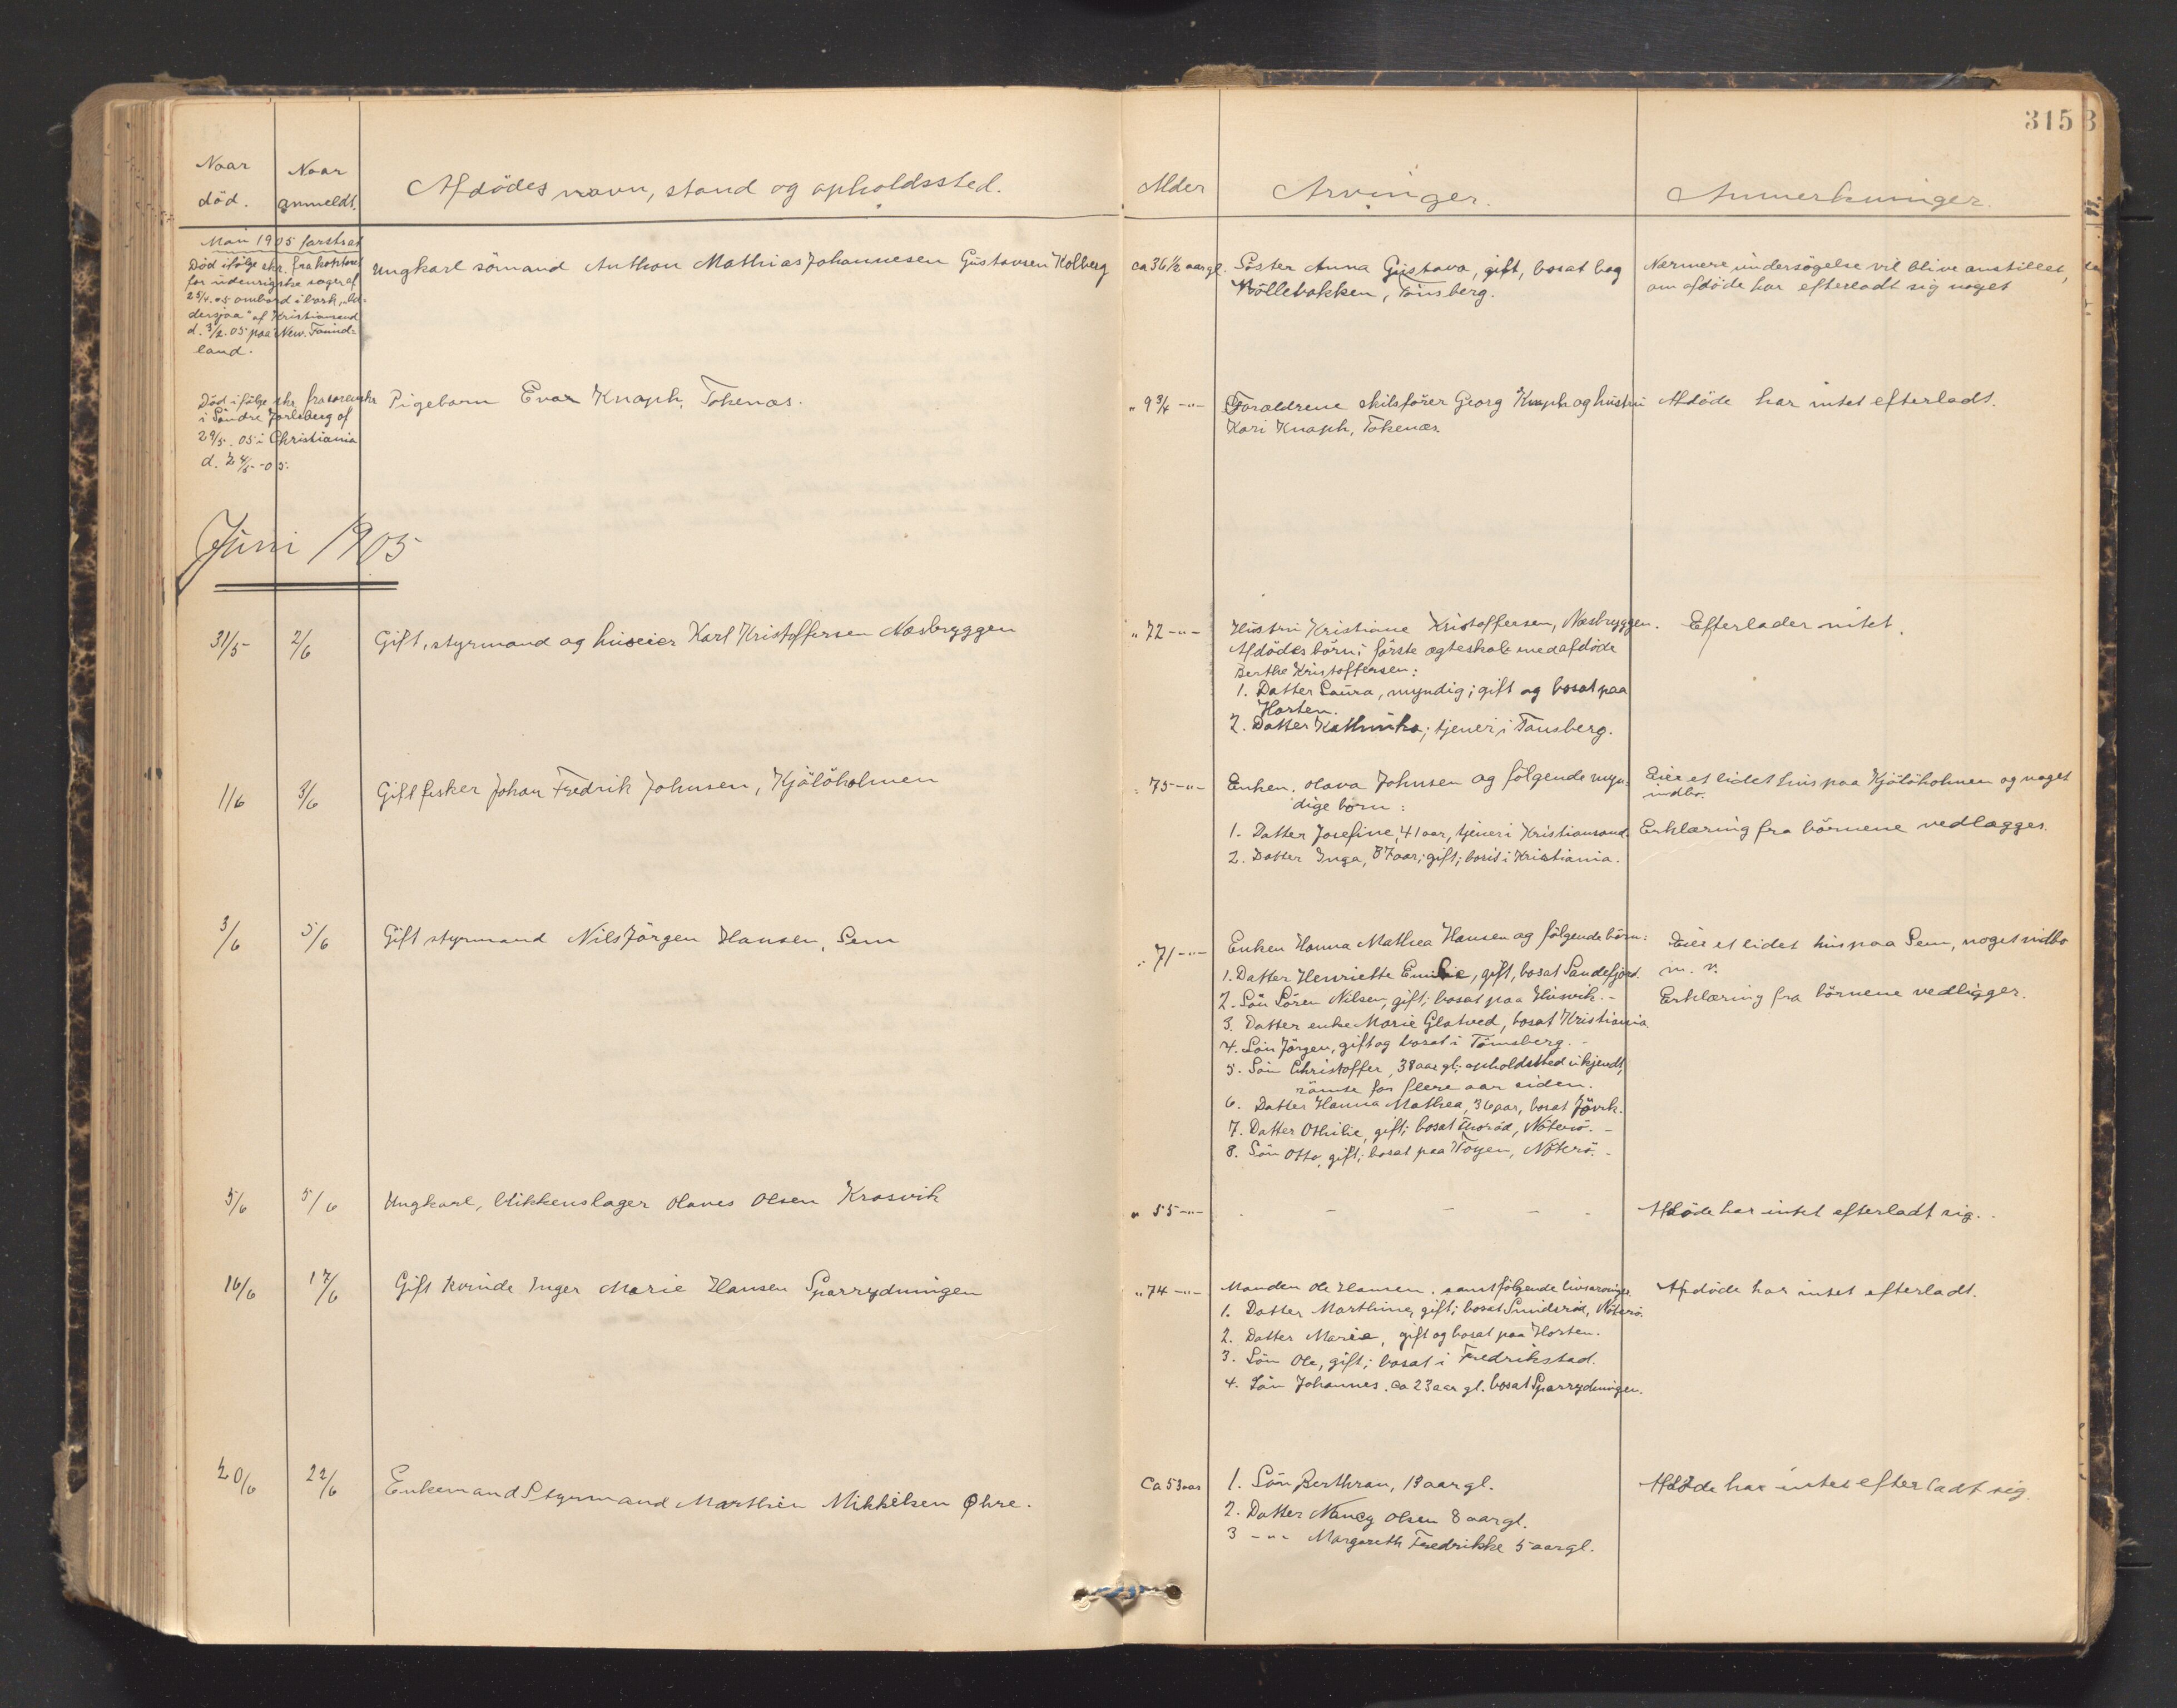 315
Naar død.
Naar anmeldt.
Afdödes navn, stand og opholdssted.
Alder
Arvinger.
Anmerkninger.
Mai 1905 forstsat
Död ifölge skr. fra kontoret
for udenrigske sager af
25/4. 05 ombord i bark
af Kristiansund
d. 3/2. 05 paa New-Found-
land.
Ungkarl sömand Anthon Mathias Johannesen Gustavsen Kolberg
ca 36 1/2 aar gl.
Söster Anna Gustava, gift, bosat bag
Möllebakken, Tönsberg.
Nærmere undersögelse vil blive anstillet,
om afdöde har efterladt sig noget
Död ifölge skr. fra sorenskr
i Söndre Jarlsberg af
29/5. 05 i Christiania
d. 24/5-05.
Pigebarn Eva Knaph, Tokenæs.
" 9 3/4 -"-
Forældrene skibsförer Georg Knaph og hustru
Kari Knaph, Tokenæs.
Afdöde har intet efterladt.
Juni 1905
31/5
2/6
Gift, styrmand og huseier Karl Kristoffersen Næsbryggen
" 72 -"-
Hustru Kristiane Kristoffersen, Næsbryggen.
Afdödes börn i förste ægteskab med afdöde
Berthe Kristoffersen:
1. Datter Laura, myndig; gift og bosat paa
Horten.
2. Datter Kathinka; tjener i Tönsberg.
Efterlader intet.
1/6
3/6
Gift fisker Johan Fredrik Johnsen, Kjölöholmen
" 75 -"-
Enken Olava Johnsen og fölgende myn-
dige börn:
1. Datter Josefine, 41 aar, tjener i Kristiansand.
2. Datter Inga, 37 aar; gift; bosit i Kristiania.
Eier et lidet hus paa Kjölöholmen og noget
indbo.
Erklæring fra börnene vedlægges.
3/6
5/6
Gift styrmand Nils Jörgen Hansen, Sem
" 71 -"-
Enken Hanna Mathea Hansen og fölgende börn:
1. Datter Henriette Emilie, gift, bosat Sandefjord.
2. Sön Sören Nilsen, gift; bosat paa Husvik. -
3. Datter enke Marie Glatved, bosat Kristiania.
4. Sön Jörgen, gift og bosat i Tönsberg. -
5. Sön Christoffer, 38 aar gl; opholdssted ukjendt,
römte for flere aar siden.
6. Datter Hanna Mathea, 36 aar, bosat
7. Datter Othilie, gift; bosat Thoröd, Nöterö. -
8. Sön Otto, gift; bosat paa Töyen, Nöterö. -
Eier et lidet hus paa Sem, noget indbo
m. v.
Erklæring fra börnene vedligger.
5/6
5/6
Ungkarl, blikkenslager Olaves Olsen Krasvik
" 55 -"-
- - - - -
Afdöde har intet efterladt sig.
16/6
17/6
Gift kvinde Inger Marie Hansen Sparrydningen
" 74 -"-
Manden Ole Hansen, samt fölgende livsarvinger
1. Datter Marthine, gift; bosat Sundsröd, Nöterö.
2. Datter Marie, gift og bosat paa Horten.
3. Sön Ole, gift; bosat i Fredrikstad.
4. Sön Johannes. ca 23 aar gl. bosat Sparrydningen.
Afdöde har intet efterladt.
20/6
22/6
Enkemand Styrmand Marthin Mikkelsen Øhre.
Ca 53 aar
1. Sön Berthran, 13 aar gl.
2. Datter Nancy Olsen 8 aar gl.
3 -"- Margareth Fredrikke 5 aar gl.
Afdöde har intet efterladt sig.